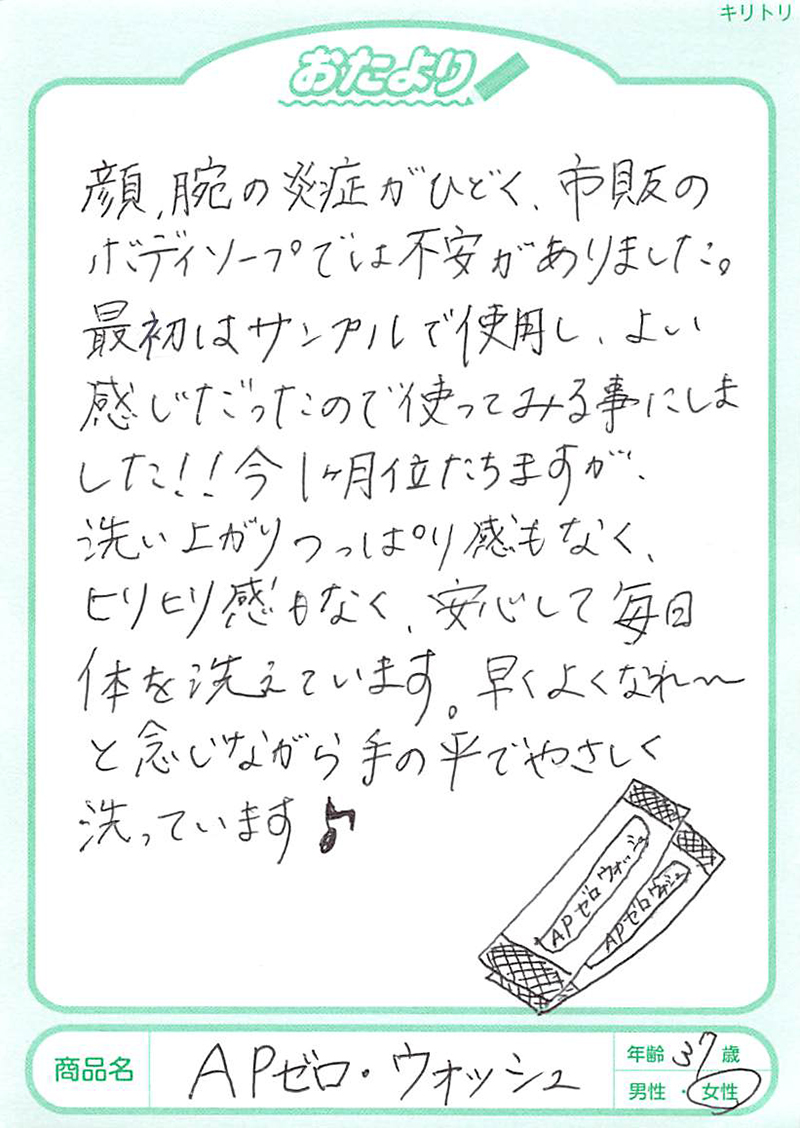 キリトリ
おたより
顔、腕の炎症がひどく、市販の
ボディソープでは不安がありました。
最初はサンプルで使用し、よい
感じだったので使ってみる事にしま
した!!今1ヶ月位たちますが、
洗い上がりつっぱり感もなく、
ヒリヒリ感もなく、安心して毎日
体を洗えています。早くよくなれ〜
と念じながら手の平でやさしく
洗っています♪
APゼロウォッシュ
APゼロウォッシュ
商品名 APゼロ・ウォッシュ 年齢 37 歳
男性・女性